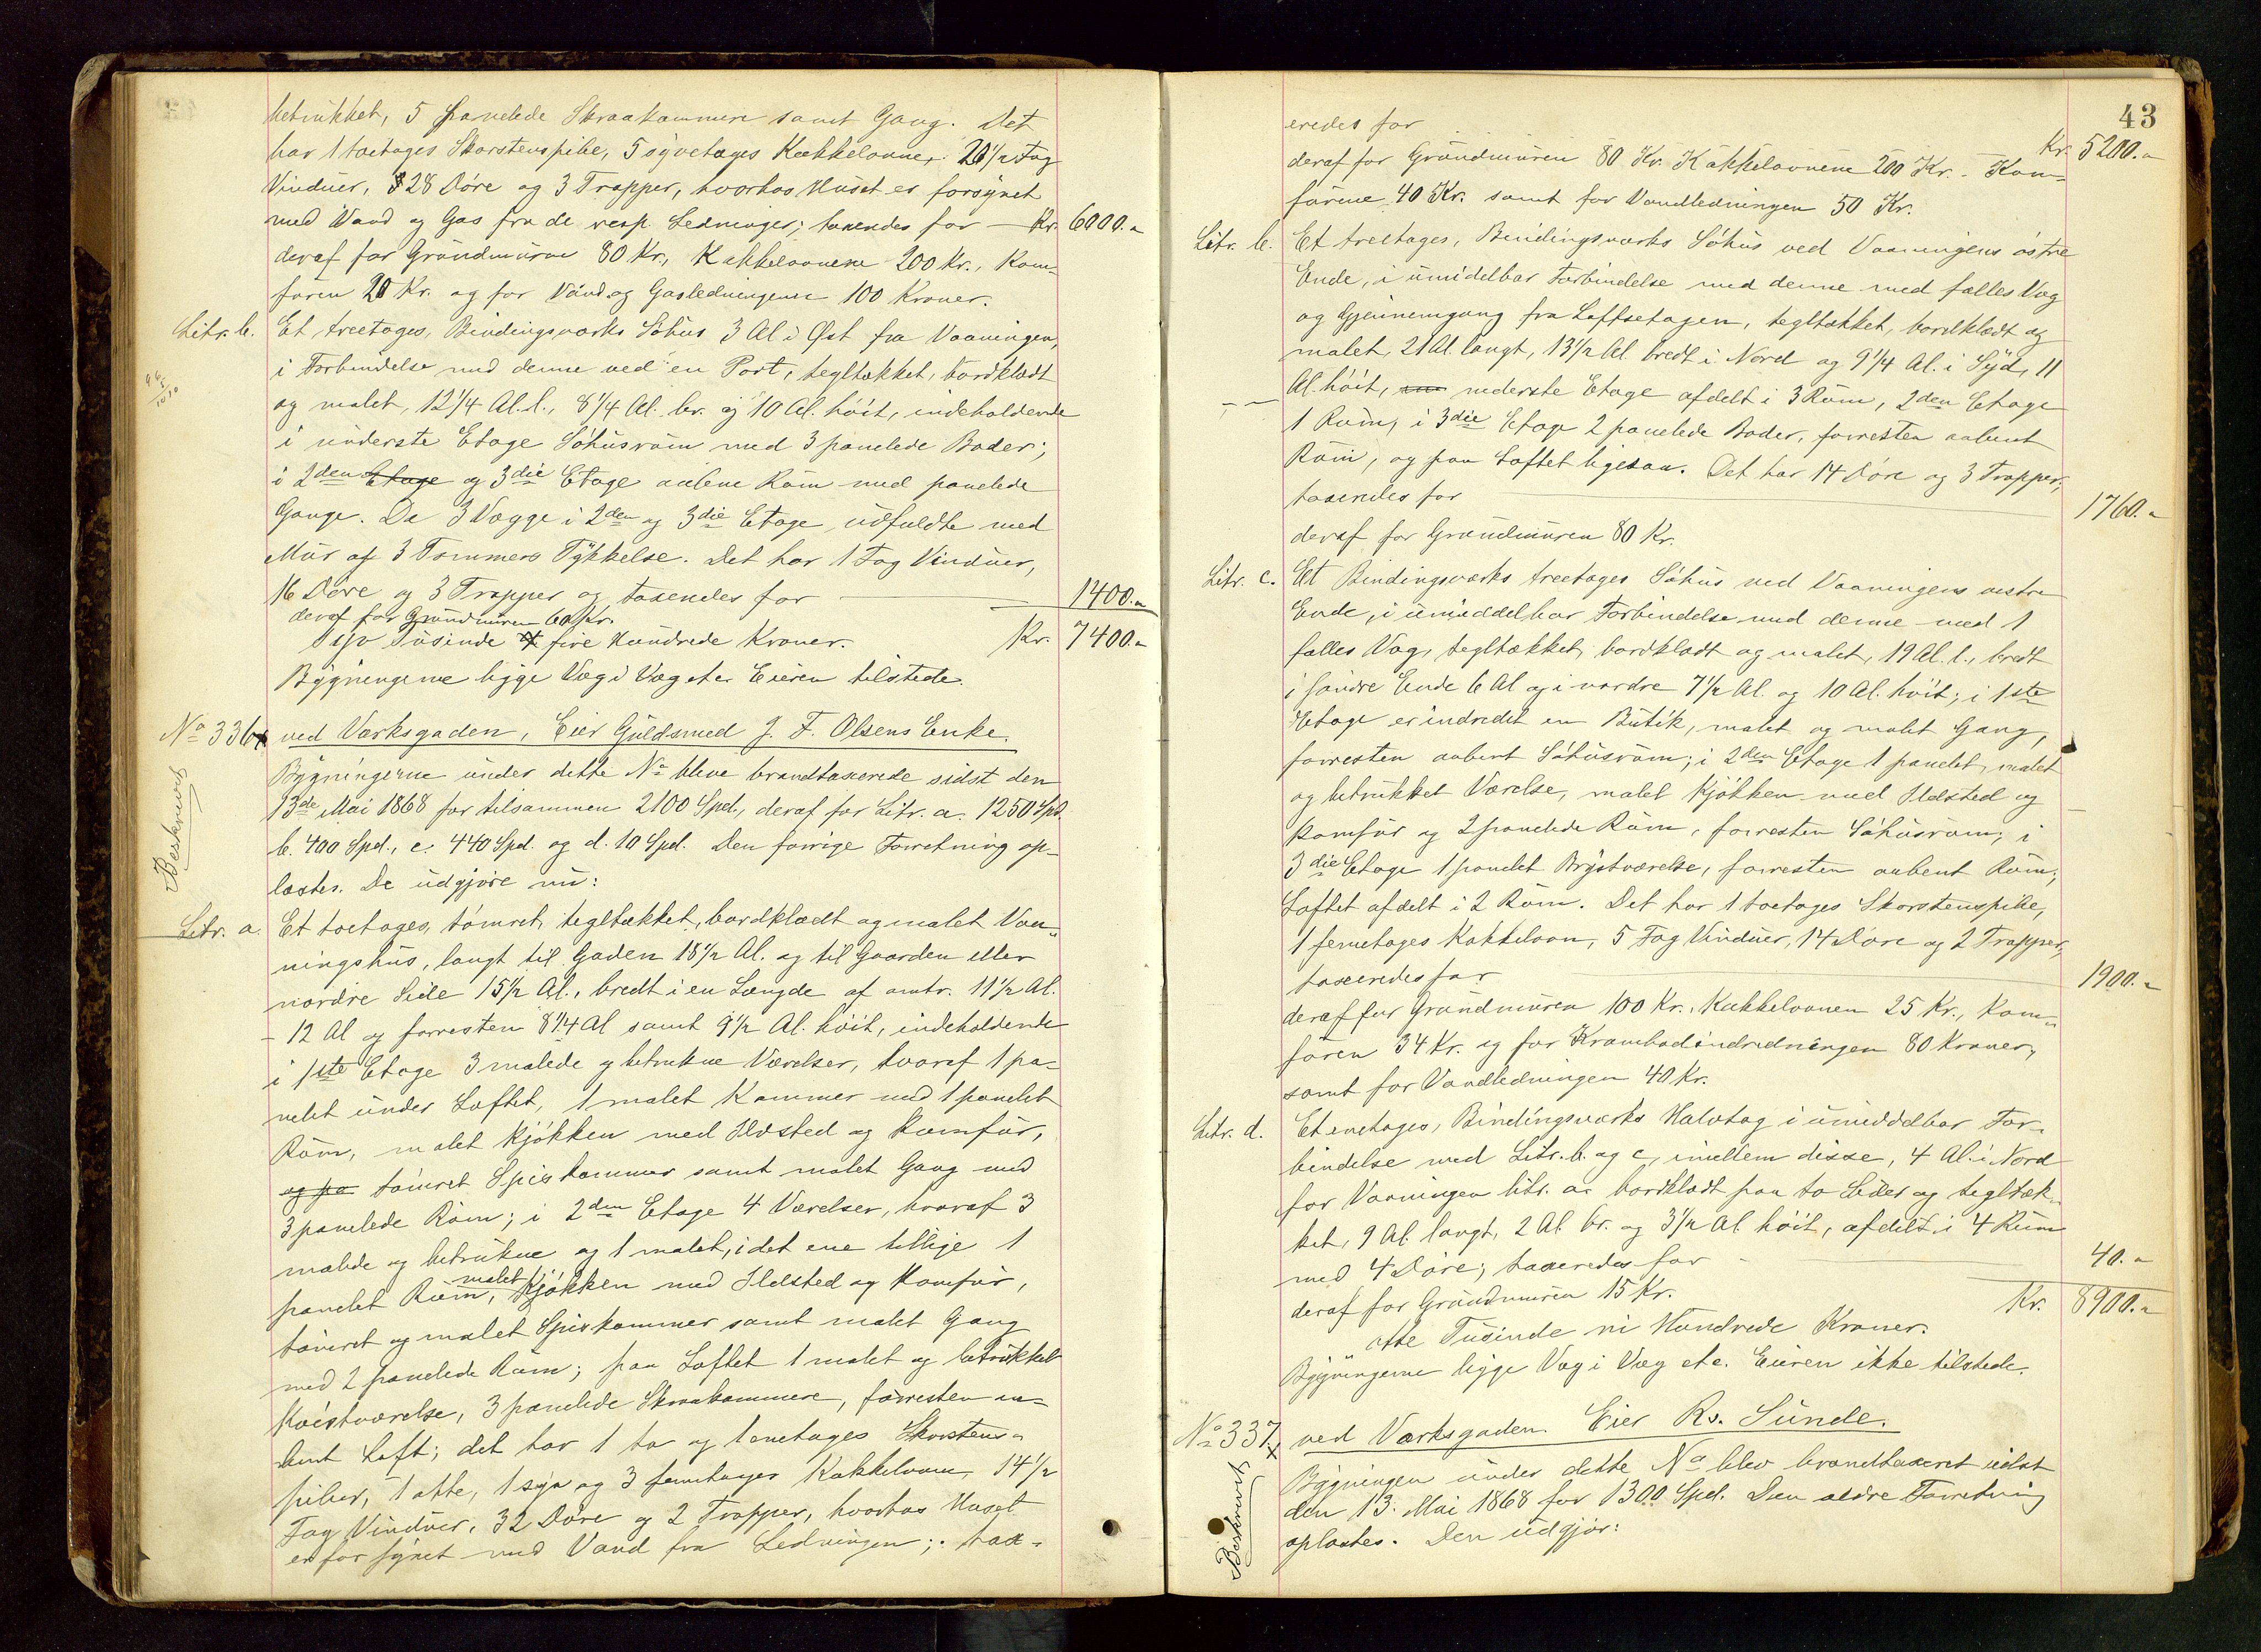 betrukket, 5 panelede Skraakammere samt Gang. Det
har 1 toetages Skorstenspibe, 5 syvetages Kakkelovne, 20 1/2 Fag
Vinduer, 28 Døre og 3 Trapper, hvorhos Huset er forsynet
med Vand og Gas fra de resp. Ledninger; taxeredes for — Kr. 6000.„
deraf for Grundmuren 80 Kr., Kakkelovnene 200 Kr., Kom-
furen 20 Kr. og for Vand- og Gasledningerne 100 Kroner.
Litr. b. Et treetages, Bindingsværks Søhus 3 Al. i Øst fra Vaaningen,
i Forbindelse med denne ved en Port, tegltækket, bordklædt
og malet, 12 1/4 Al. l., 8 1/4 Al. br. og 10 Al. høit, indeholdende
i underste Etage Søhusrum med 3 panelede Boder;
i 2den Etage og 3die Etage aabne Rum med panelede
Gange. De 3 Vægge i 2den og 3die Etage udfuldte med
Mur af 3 Tommers Tykkelse. Det har 1 Fag Vinduer,
16 Døre og 3 Trapper og taxeredes for — 1400.„
deraf for Grundmuren 60 Kr.
Syv Tusinde fire Hundrede Kroner. Kr. 7400.„
Bygningerne ligge Væg i Væg etc. Eieren tilstede.
No 336 ved Værksgaden, Eier Guldsmed J. F. Olsens Enke.
Beskrevet
Bygningerne under dette No bleve brandtaxerede sidst den
13de Mai 1868 for tilsammen 2100 Spd., deraf for Litr. a. 1250 Spd.
b. 400 Spd., c. 440 Spd. og d. 10 Spd. Den forrige Forretning op-
læstes. De udgjøre nu:
Litr. a. Et toetages, tømret, tegltækket, bordklædt og malet Vaa-
ningshus, langt til Gaden 18 1/2 Al. og til Gaarden eller
nordre Side 15 1/2 Al., bredt i en Længde af omtr. 11 1/2 Al.
- 12 Al og forresten 8 1/4 Al samt 9 1/2 Al. høit, indeholdende
i 1ste Etage 3 malede og betrukne Værelser, hvoraf 1 pa-
nelet under Loftet, 1 malet Kammer med 1 panelet
Rum, malet Kjøkken med Ildsted og Komfur,
og pa tømret Spiskammer samt malet Gang med
3 panelede Rum; i 2den Etage 4 Værelser, hvoraf 3
malede og betrukne og 1 malet, i det ene tillige 1
panelet Rum, malet Kjøkken med Ildsted og Komfur,
tømret og malet Spiskammer samt malet Gang
med 2 panelede Rum; paa Loftet 1 malet og betrukket
Kvistværelse, 3 panelede Skraakammere, forresten aa-
bent Loft; det har 1 to og 1 enetages Skorstens-
piber, 1 otte, 1 syv og 3 femetages Kakkelovne, 14 1/2
Fag Vinduer, 32 Døre og 2 Trapper, hvorhos Huset
er forsynet med Vand fra Ledningen; tax-
43
eredes for Kr. 5200.„
deraf for Grundmuren 80 Kr. Kakkelovnene 200 Kr. - Kom-
furene 40 Kr. samt for Vandledningen 50 Kr.
Litr. b. Et treetages, Bindingsværks Søhus ved Vaaningens østre
Ende, i umidelbar Forbindelse med denne med fælles Væg
og Gjennemgang fra Loftsetagen, tegltækket, bordklædt og
malet, 21 Al. langt, 13 1/2 Al. bredt i Nord og 9 1/4 Al. i Syd, 11
Al. høit, nederste Etage afdelt i 3 Rum, 2den Etage
1 Rum, i 3die Etage 2 panelede Boder, forresten aabent
Rum, og paa Loftet ligesaa. Det har 14 Døre og 3 Trapper,
taxeredes for 1760.„
deraf for Grundmuren 80 Kr.
Litr. c. Et Bindingsværks treetages Søhus ved Vaaningens vestre
Ende, i umiddelbar Forbindelse med denne med 1
fælles Væg, tegltækket, bordklædt og malet, 19 Al. l., bredt
i søndre Ende 6 Al og i nordre 7 1/2 Al. og 10 Al. høit; i 1ste
Etage er indredet en Butik, malet og malet Gang,
forresten aabent Søhusrum; i 2den Etage 1 panelet, malet
og betrukket Værelse, malet Kjøkken med Ildsted og
Komfur og 2 panelede Rum, forresten Søhusrum; i
3die Etage 1 panelet Brystværelse, forresten aabent Rum;
Loftet afdelt i 2 Rum. Det har 1 toetages Skorstenspibe,
1 femetages Kakkelovn, 5 Fag Vinduer, 14 Døre og 2 Trapper,
taxeredes for 1900.„
deraf for Grundmuren 100 Kr., Kakkelovnen 25 Kr., Kom-
furen 34 Kr. og for Krambodindredningen 80 Kroner,
samt for Vandledningen 40 Kr.
Litr. d. Et enetages, Bindingsværks Halvtag i umiddelbar For-
bindelse med Litr. b. og c, imellem disse, 4 Al. i Nord
for Vaaningen litr. a. bordklædt paa to Sider og tegltæk-
ket, 9 Al. langt, 2 Al. br. og 3 1/2 Al. høit, afdelt i 4 Rum
med 4 Døre; taxeredes for 40.„
deraf for Grundmuren 15 Kr. Kr. 8900.„
otte Tusinde ni Hundrede Kroner.
Bygningerne ligge Væg i Væg etc. Eieren ikke tilstede.
No 337. ved Værksgaden. Eier Rs. Sunde.
Beskrevet
Bygningen under dette No blev brandtaxeret sidst
den 13. Mai 1868 for 1300 Spd. Den ældre Forretning
oplæstes. Den udgjør: